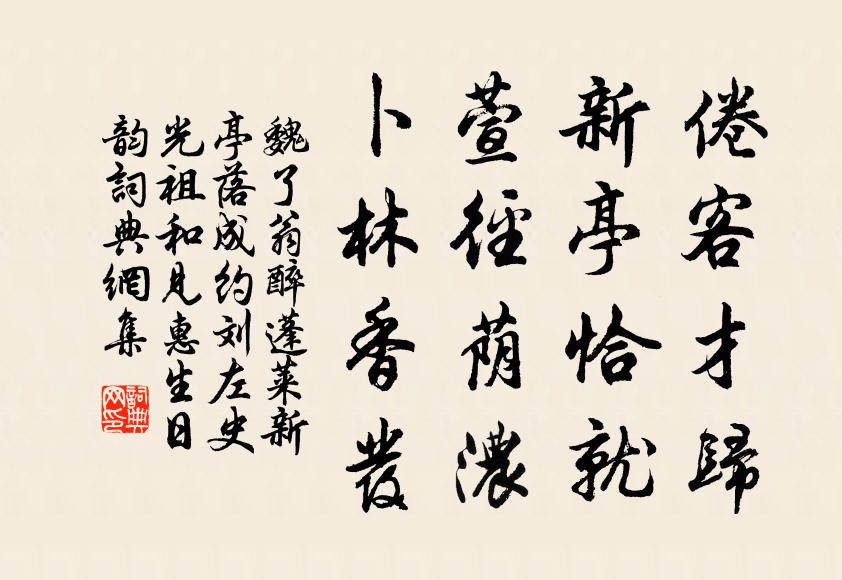 倦客才歸
新亭恰就
萱徑荫濃
卜林香發
魏了翁醉蓬萊新
亭落成约刘左史
光祖和見惠生日
韵詞典網集
詞典
网印